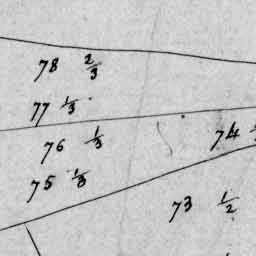 78 2/3
77 1/3
76 1/3
74
75 1/8
73 1/2